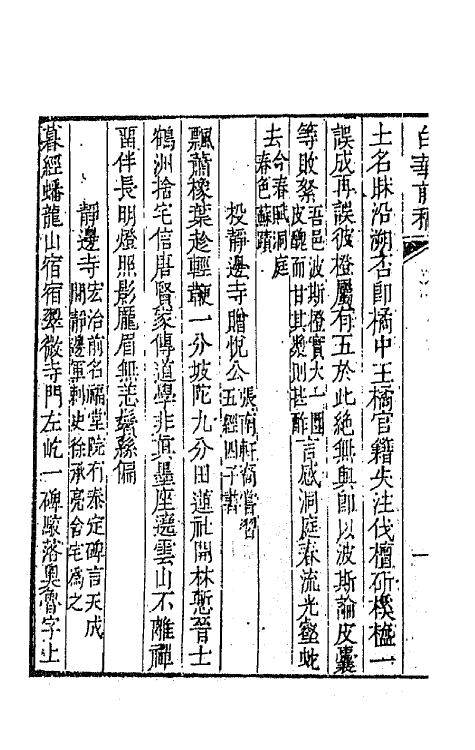 白華前稿
土名昧沿溯否即橘中王橘官籍失注伐檀斫檴櫨一
誤成再誤彼橙屬有五於此絶無與即以波斯論皮囊
等敗絮吾邑波斯橙實大一圍皮醜而甘其漿則甚酢言感洞庭春流光壑蛇
去今春賦洞庭春色蘇蹟
投静邊寺贈悦公張南軒裔嘗習五經四子書
飄蕭橡葉趁輕鞭一分坡陀九分田蓮社開林慙晉士
鶴洲捨宅信唐賢家傳道學非真墨座遶雲山不離禪
畱伴長明燈照影龐眉無恙鬢絲偏
静邊寺宏治前名福堂院有泰定碑言天成閒静邊軍刺史徐承亮舍宅爲之
暮經蟠龍山宿宿翠微寺門左屹一碑駮落奥魯字上